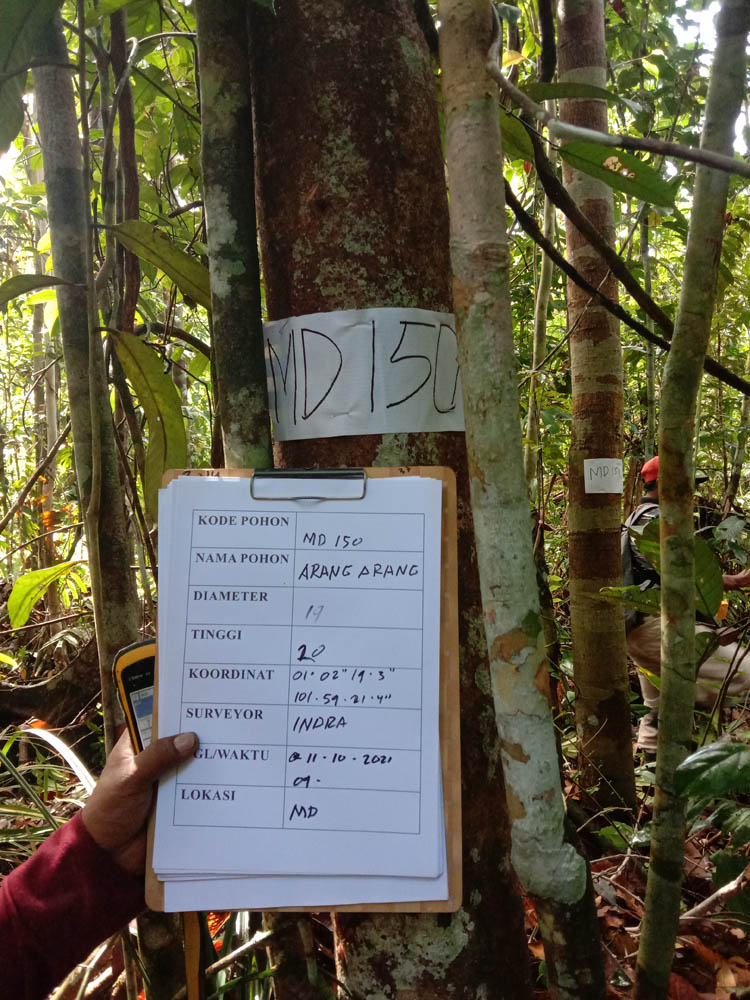 MD 150
MD 151
KODE POHON MD 150
NAMA POHON ARANG ARANG
DIAMETER 19
TINGGI 20
KOORDINAT 01.02"19.3"
101.59.21.4"
SURVEYOR INDRA
GL/WAKTU 11.10.2021
09.
LOKASI MD